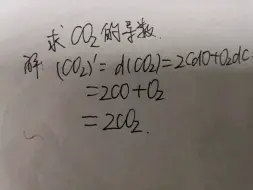 求CO₂的导数.
解 (CO₂)' = d(CO₂) = 2CdO+O₂dC
= 2CO+O₂
= 2CO₂.